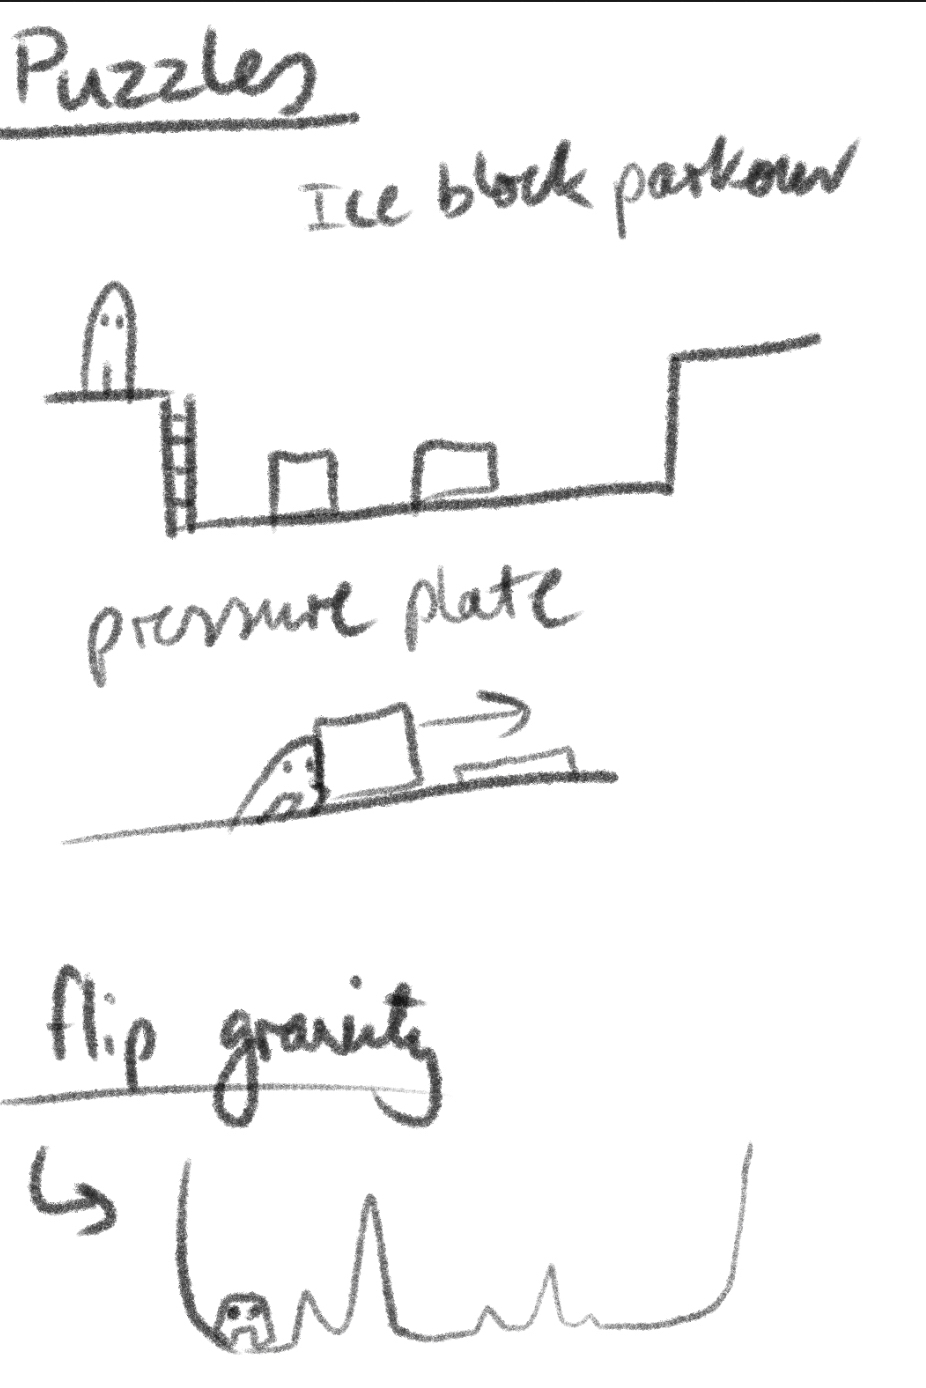 Puzzles
Ice block parkour
pressure plate
flip gravity